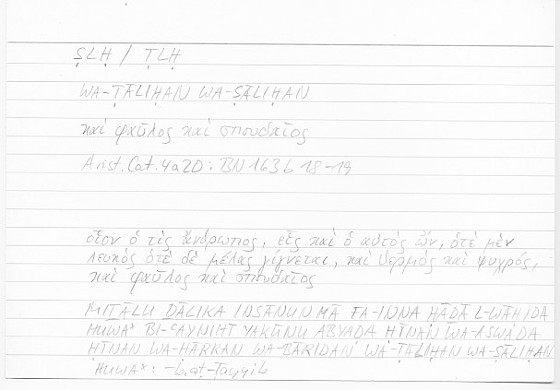 ṢLḤ / ṬLḤ
WA-ṬĀLIḤAN WA-ṢĀLIḤAN
καὶ φαῦλος καὶ σπουδαῖος
Arist. Cat. 4a20 : BN 163 b 18-19
οἷον ὁ τὶς ἄνθρωπος, εἷς καὶ ὁ αὐτὸς ὤν, ὁτὲ μὲν
λευκὸς ὁτὲ δὲ μέλας γίγνεται, καὶ θερμὸς καὶ ψυχρός,
καὶ φαῦλος καὶ σπουδαῖος
MITĀLU ḎĀLIKA INSĀNUN MĀ FA-INNA HĀḎĀ L-WĀḤIDA
HUWAˣ BI-ʿAYNIHI YAKŪNU ABYAḌA ḤĪNAN WA-ASWADA
ḤĪNAN WA-ḤĀRRAN WA-BĀRIDAN WA-ṬĀLIḤAN WA-ṢĀLIḤAN
HUWAˣ: